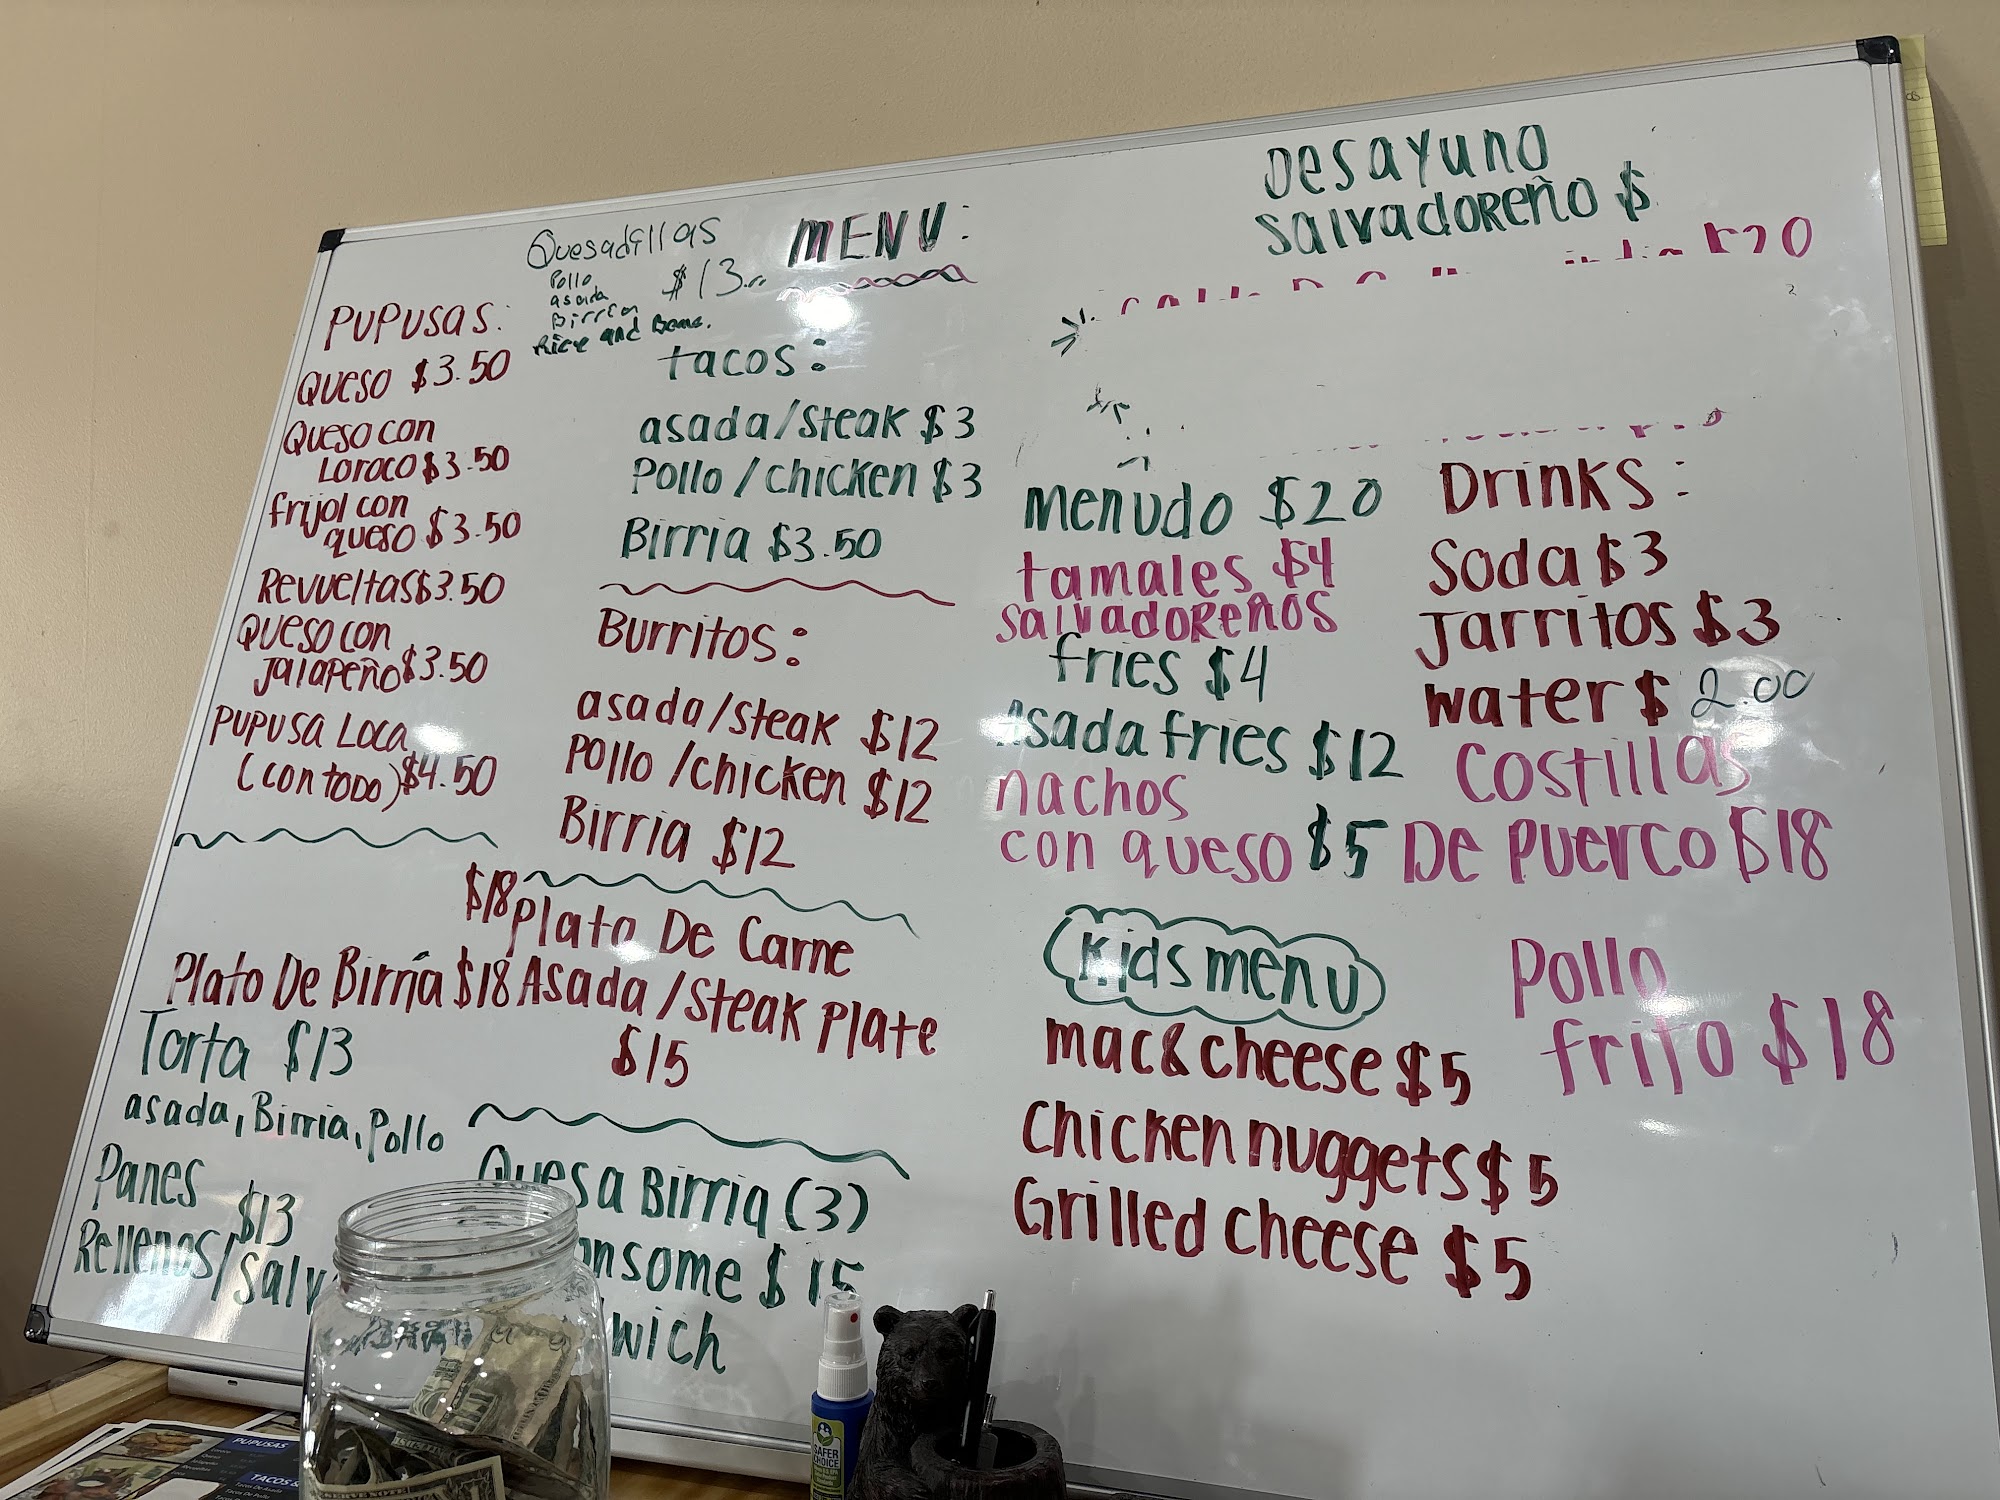 MENU:
Quesadillas
Pollo
asada
Birria
$13.
Rice and Beans.
PUPUSAS:
Queso $3.50
Queso con
Loroco $3.50
frijol con
queso $3.50
Revueltas $3.50
Queso con
Jalapeño $3.50
PUPUSA Loca
(con todo) $4.50
tacos:
asada/steak $3
Pollo/chicken $3
Birria $3.50
Burritos:
asada/steak $12
Pollo/chicken $12
Birria $12
$18
Plato De Carne
Plato De Birria $18
Asada/Steak Plate
$15
Torta $13
asada, Birria, Pollo
Panes
$13
Rellenos/Salv
QuesaBirria (3)
consome $15
wich
Desayuno
Salvadoreño $
$20
menudo $20
tamales $4
Salvadoreños
fries $4
Asada fries $12
nachos
con queso $5
Drinks:
Soda $3
Jarritos $3
water $2.00
Costillas
De Puerco $18
Pollo
frito $18
Kids menu
mac&cheese $5
Chicken nuggets $5
Grilled cheese $5
SAFER
CHOICE
PUPUSAS
TACOS &